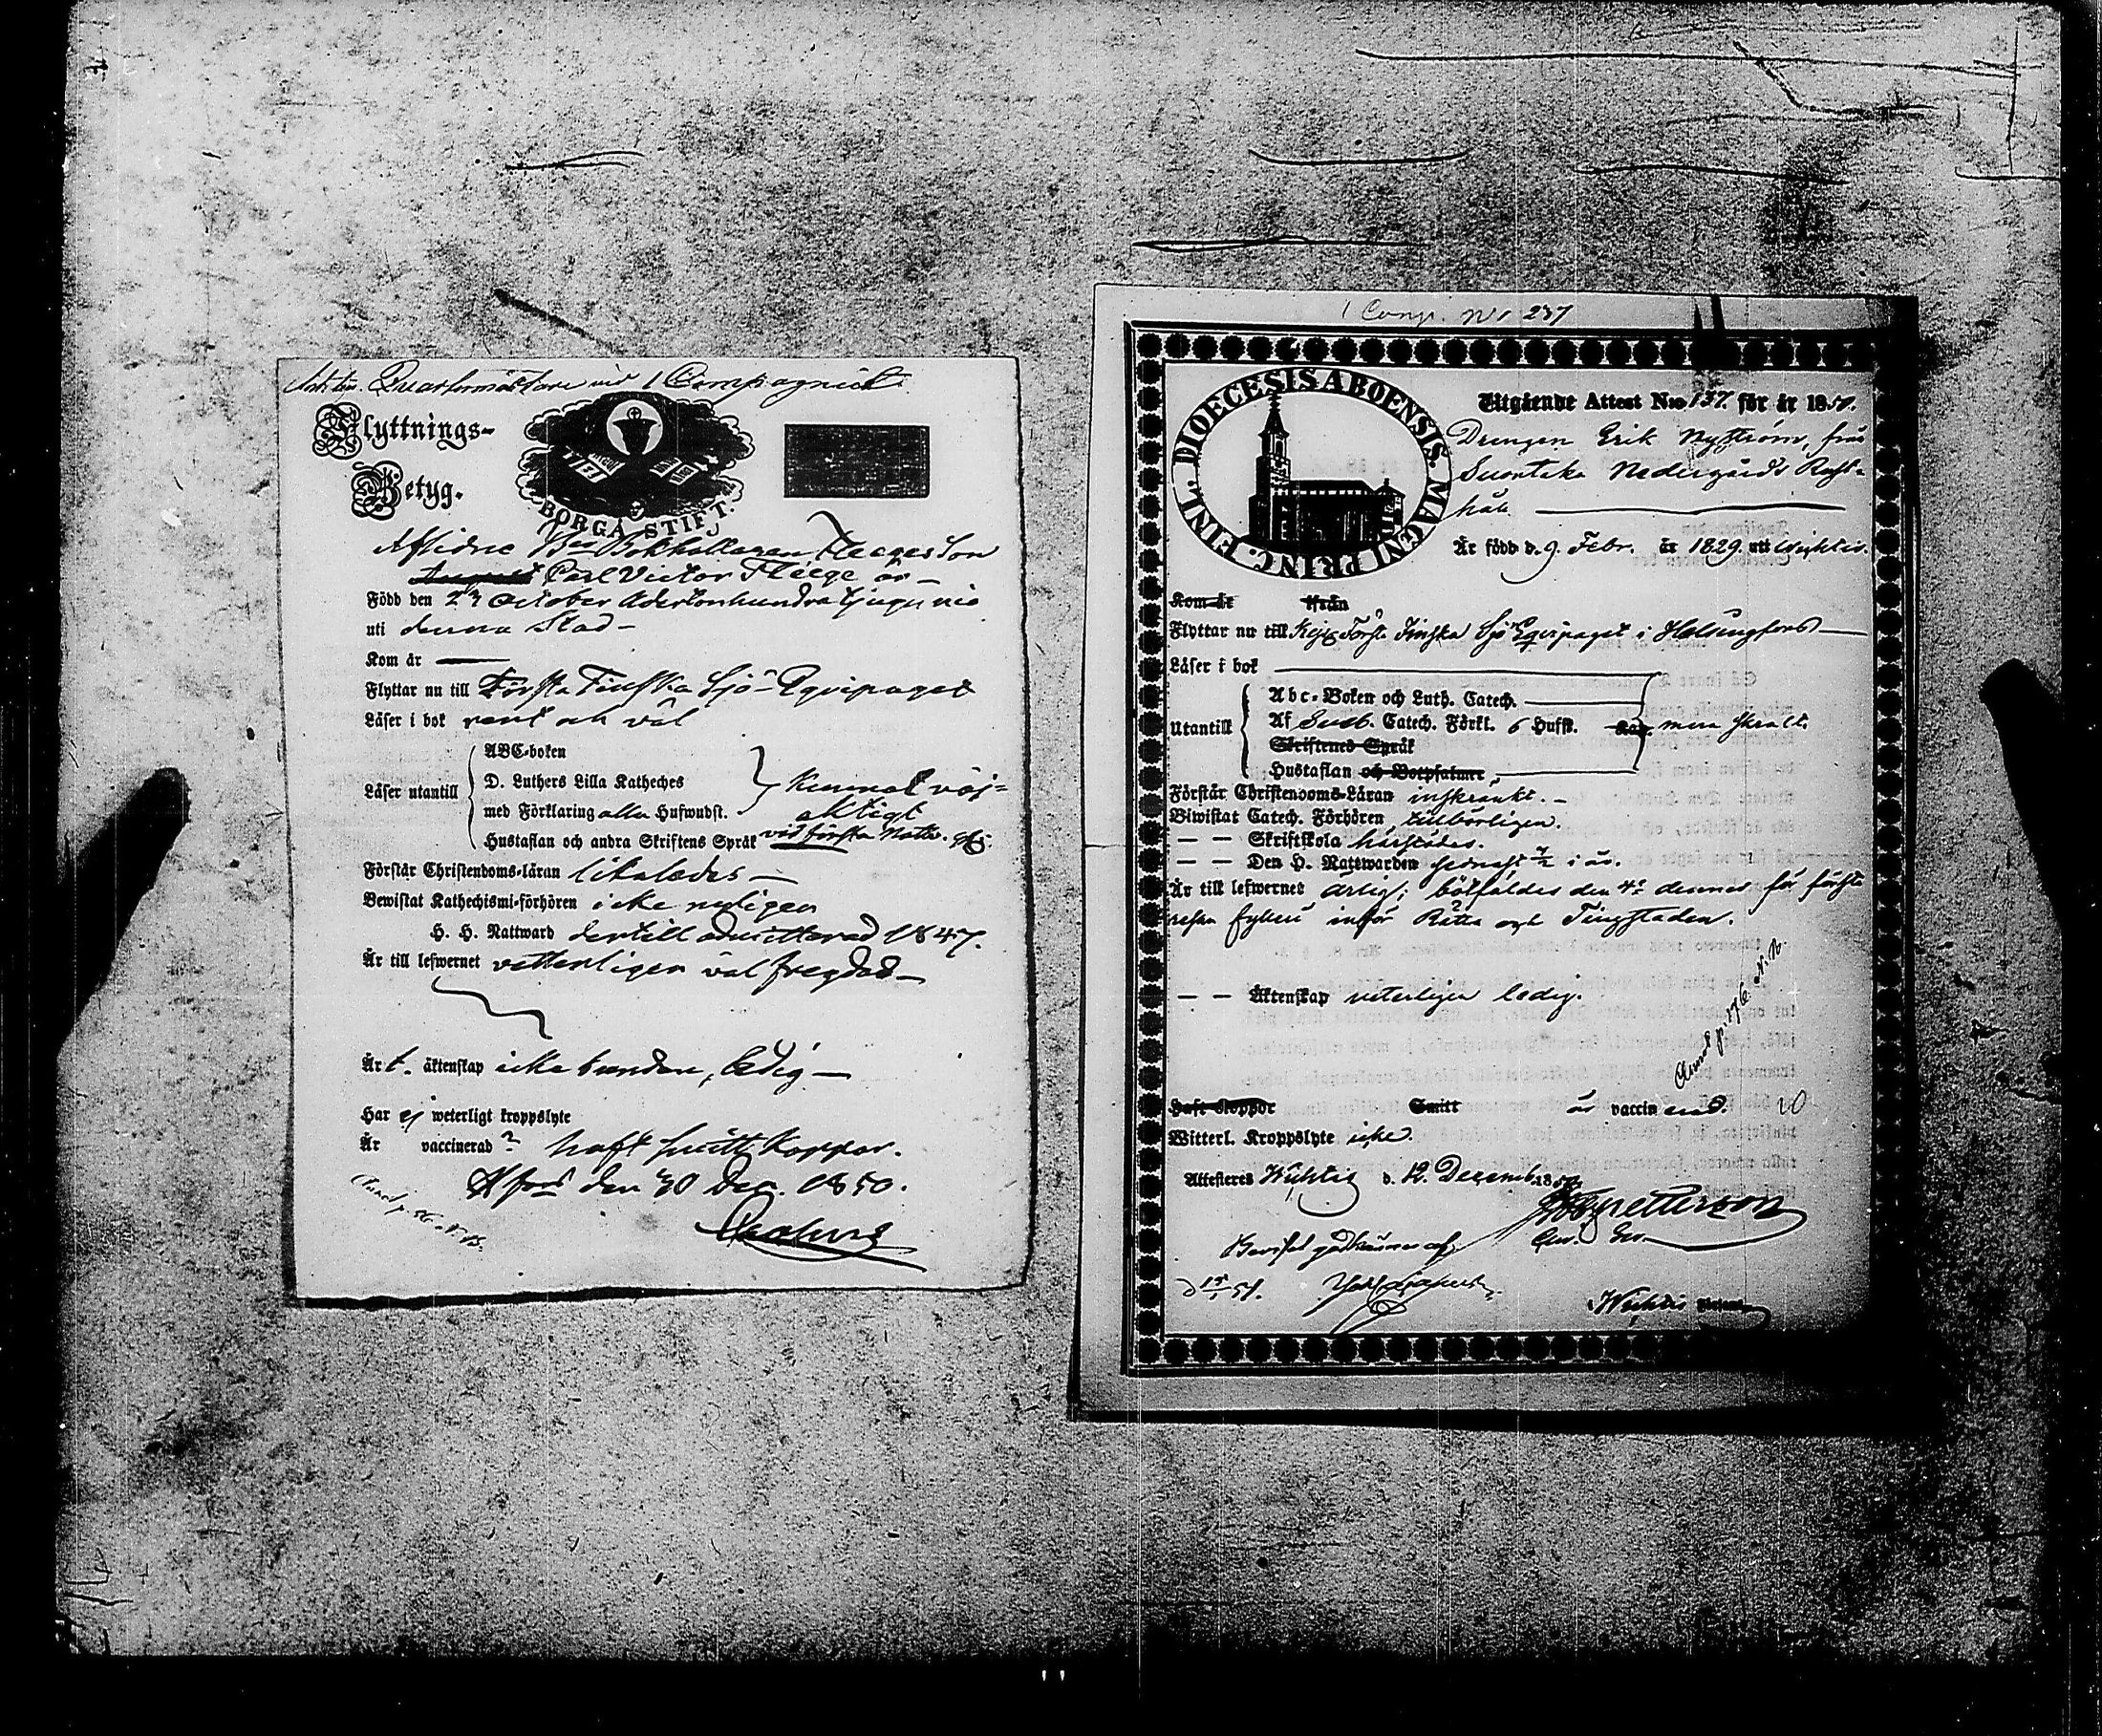 Quartermästare vid 1 Compagniet.
Flyttnings-
Betyg.
BORGÅ STIFT.
Aflidne Bokhållaren Fleeges Son
Carl Victor Fleege är –
Född den 27 October Adertonhundratjugunio
uti denna Stad –
Kom år
Flyttar nu till Första Finska Sjö-Eqvipaget
Läser i bok rent och väl
Läser utantill
ABC-boken
D. Luthers Lilla Katheches
med Förklaring alla Hufwudst.
Hustaflan och andra Skriftens Språk vid första Nattv.
Förstår Christendoms-läran likaledes –
Bewistat Kathechismi-förhören icke nyligen
H. H. Nattward dertill admitterad 1847.
Är till lefwernet vetterligen väl frejdad –
Är t. äktenskap icke bunden, ledig –
Har ej weterligt kroppslyte
Är vaccinerad? haft smitt Koppor.
H fors den 30 Dec. 1850.
1 Comp. No 237
DIOECESIS ABOENSIS. MAGNI PRINC. FINL.
Utgående Attest N:o 137. för år 1850.
Drengen Erik Nyström, från
Suontaka Nedergårds Rust-
håll
Är född d. 9. Febr. år 1829. uti Wichtis.
Kom år ifrån
Flyttar nu till Kejs. Första Finska Sjö Eqvipaget i Helsingfors
Läser i bok
Utantill
Abc-Boken och Luth. Catech.
Af Sveb. Catech. Förkl. 6 Hufst. mera skralt.
Skriftenes Språk
Hustaflan och Botpsalmer
Förstår Christendoms-Läran inskränkt. –
Biwistat Catech. Förhören tillbörligen.
— — Skriftskola härstädes.
— — Den H. Nattwarden sednast i år.
Är till lefwernet ärligt; bötfäldes den 4 dennes för första
resan fylleri inför Rätta och Tingstaden.
— — Äktenskap veterligen ledig.
Haft Koppor Smitt är vaccinerad. 20
Witterl. Kroppslyte icke.
Attesteras Wichtis d. 12. Decemb. 1850
Beviset godkännes af
Wichtis